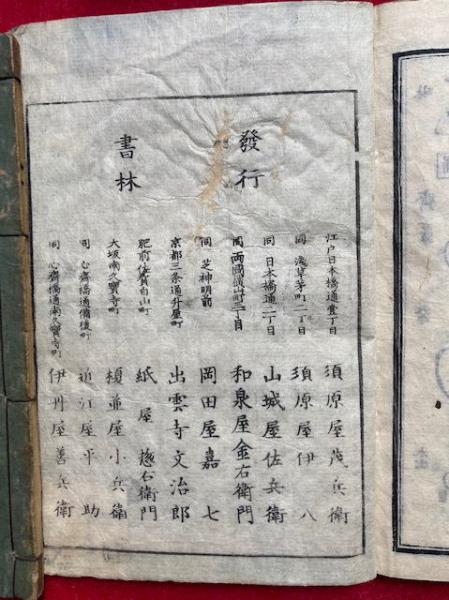 發行
書林
江戸日本橋通壹丁目 須原屋茂兵衛
同 浅草茅町二丁目 須原屋伊八
同 日本橋通二丁目 山城屋佐兵衛
同 両國横山町三丁目 和泉屋金右衛門
同 芝神明前 岡田屋嘉七
京都三条通升屋町 出雲寺文治郎
肥前佐賀白山町 紙屋惣右衛門
大坂南久寳寺町 榎並屋小兵衛
同 心齋橋通備後町 近江屋平助
同 心齋橋通南久寳寺町 伊丹屋善兵衛